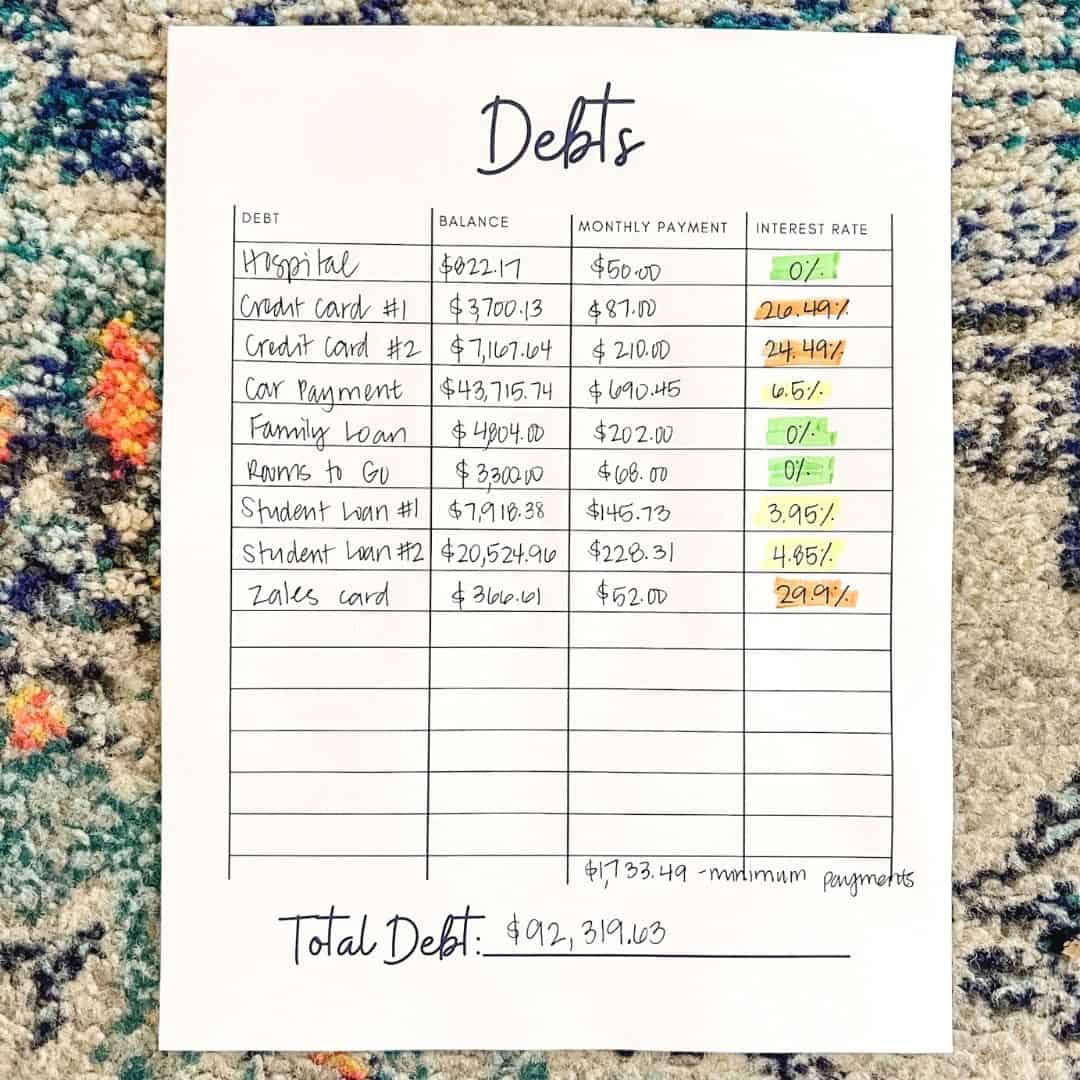 Debts
DEBT BALANCE MONTHLY PAYMENT INTEREST RATE
Hospital $822.17 $50.00 0%
Credit Card #1 $3,700.13 $87.00 26.49%
Credit Card #2 $7,167.64 $210.00 24.49%
Car Payment $43,715.74 $690.45 6.5%
Family Loan $4804.00 $202.00 0%
Rooms to Go $3,300.00 $68.00 0%
Student Loan #1 $7,918.38 $145.73 3.95%
Student Loan #2 $20,524.96 $228.31 4.85%
Zales card $366.61 $52.00 29.9%
$1,733.49 - minimum payments
Total Debt: $92,319.63